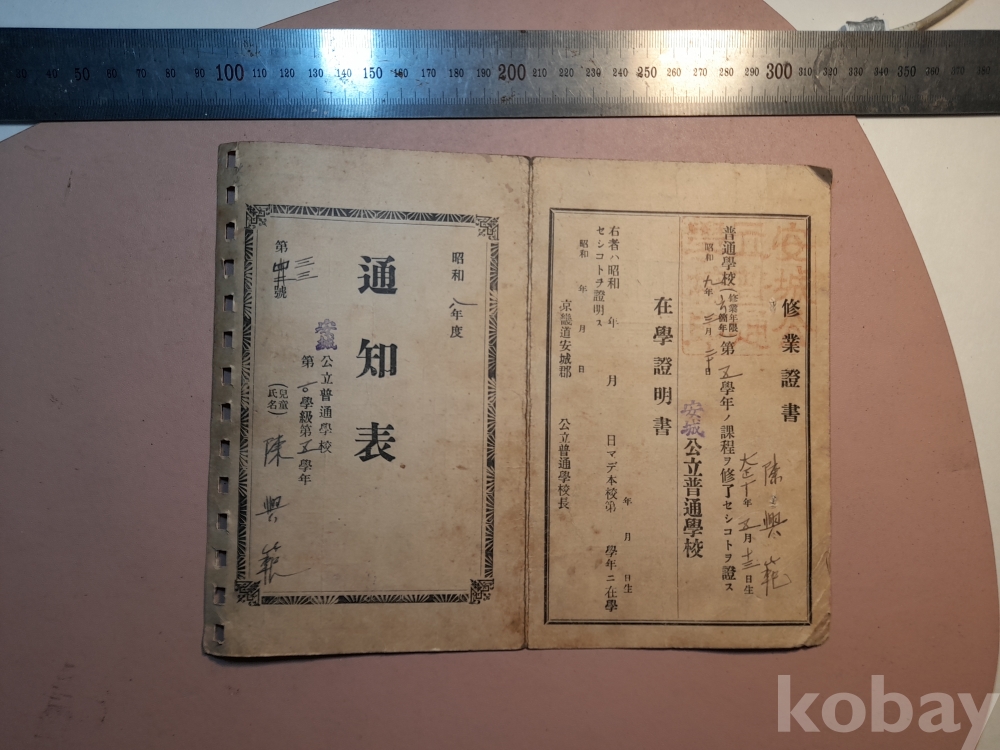 30 40 50 60 70 80 90 100 110 120 130 140 150 160 170 180 190 200 210 220 230 240 250 260 270 280 290 300 310 320 330 340 350 360 370 380
修業證書
陳興範
大正十年五月十三日生
普通學校(修業年限六箇年)第五學年ノ課程ヲ修了セシコトヲ證ス
昭和九年三月二十日
安城公立普通學校
在學證明書
年月日生
右者ハ昭和 年 月 日マデ本校第 學年ニ在學
セシコトヲ證明ス
昭和 年 月 日
京畿道安城郡 公立普通學校長
昭和八年度
通知表
安城公立普通學校
第 學級第五學年
第三三號
(兒童氏名)陳興範
kobay